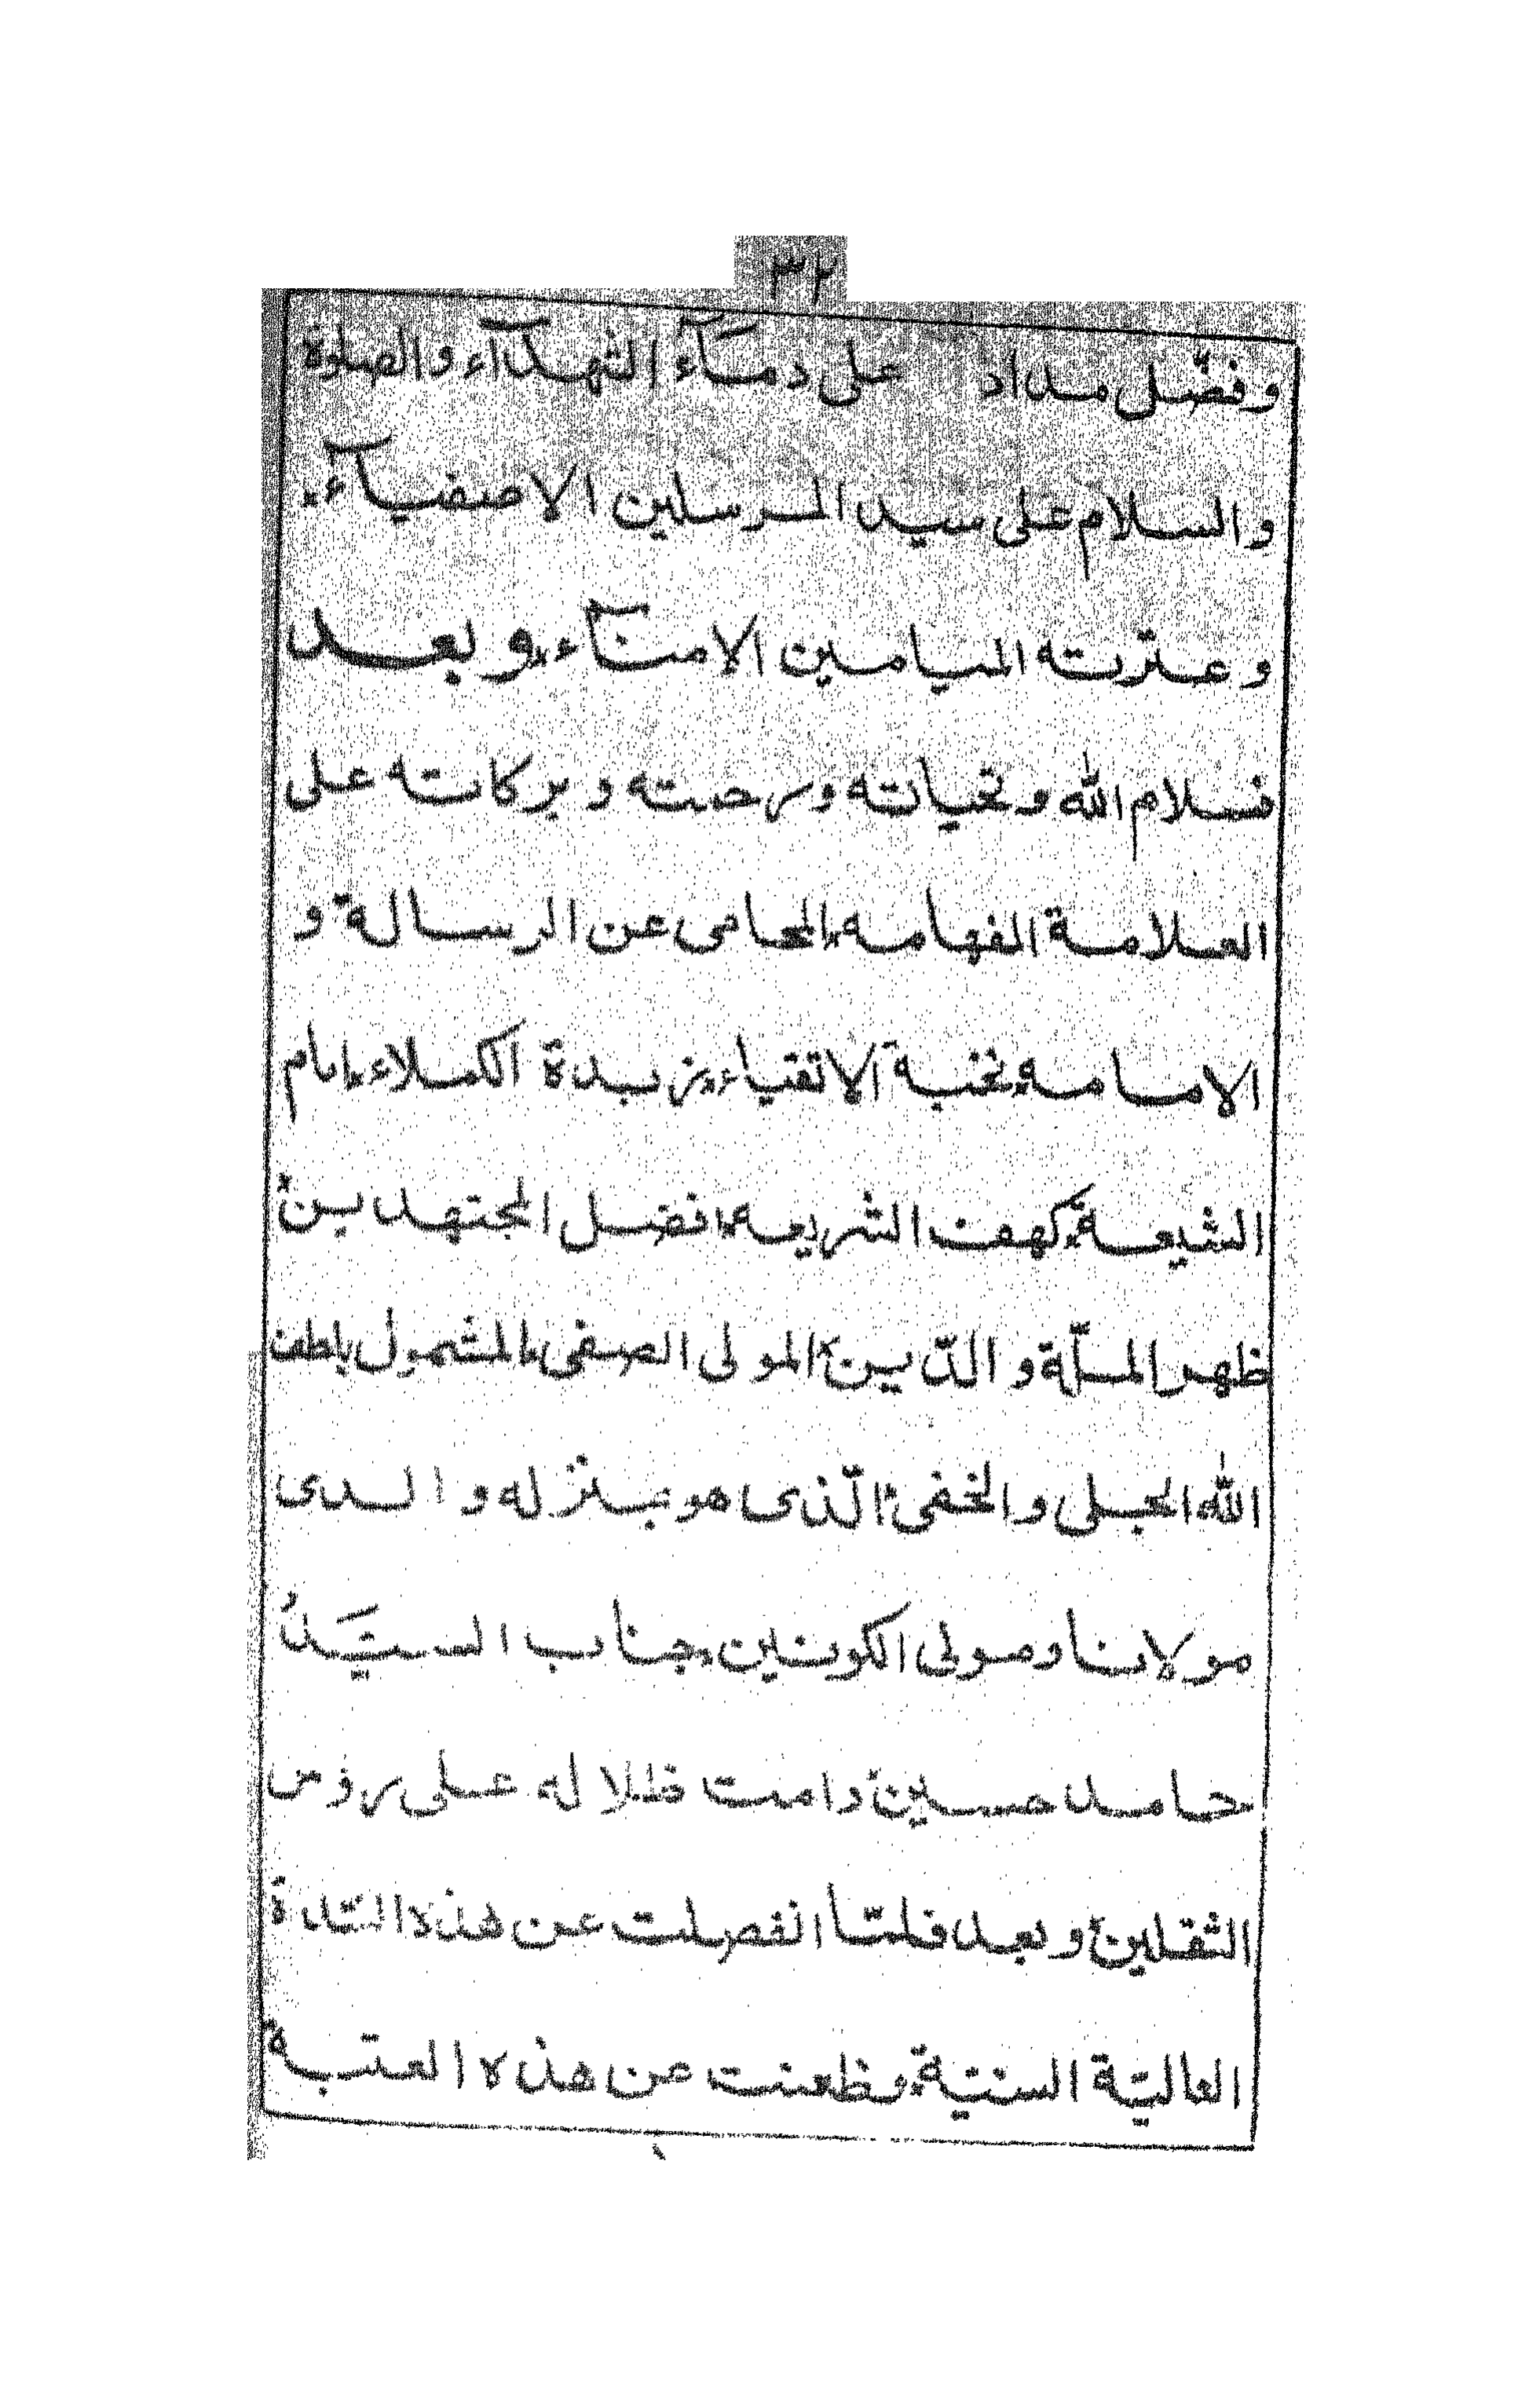 ٣٢
وفضّل مداد على دمآء الشهدآء والصلوة
والسلام على سيد المرسلين الاصفيآء
وعترته الميامين الامنآء وبعد
فسلام الله وتحياته ورحمته وبركاته على
العلامة الفهامه المحامى عن الرسالة و
الامامه نخبة الاتقياء زبدة الكملاء امام
الشيعة كهف الشريعه افضل المجتهدين
ظهر الملّة والدّين المولى الصفى المشمول بلطف
الله الجلى والخفى الّذى هو بمنزله والدى
مولانا ومولى الكونين جناب السيّد
حامد حسين دامت ظلاله على رؤس
الثقلين وبعد فلمّا انفصلت عن هذه السّدة
العاليّة السنيّة وظعنت عن هذه العتبة